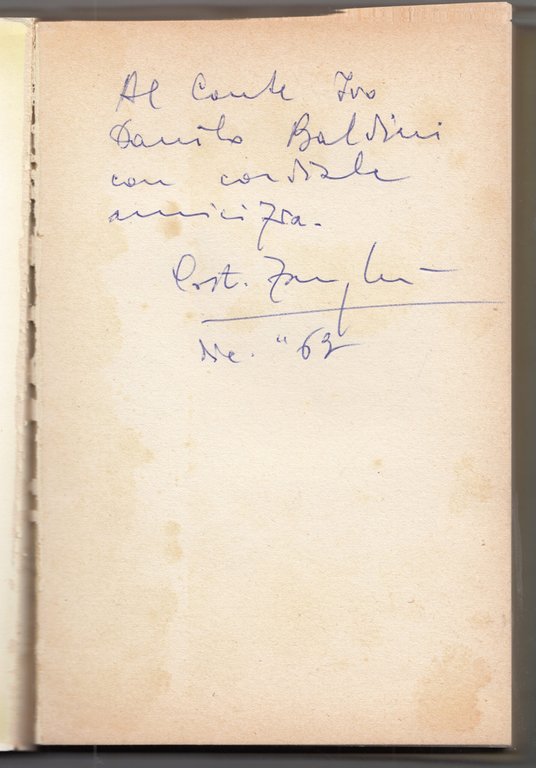 Al Conte Ivo
Danilo Baldini
con cordiale
amicizia.
Crst.
dic. "